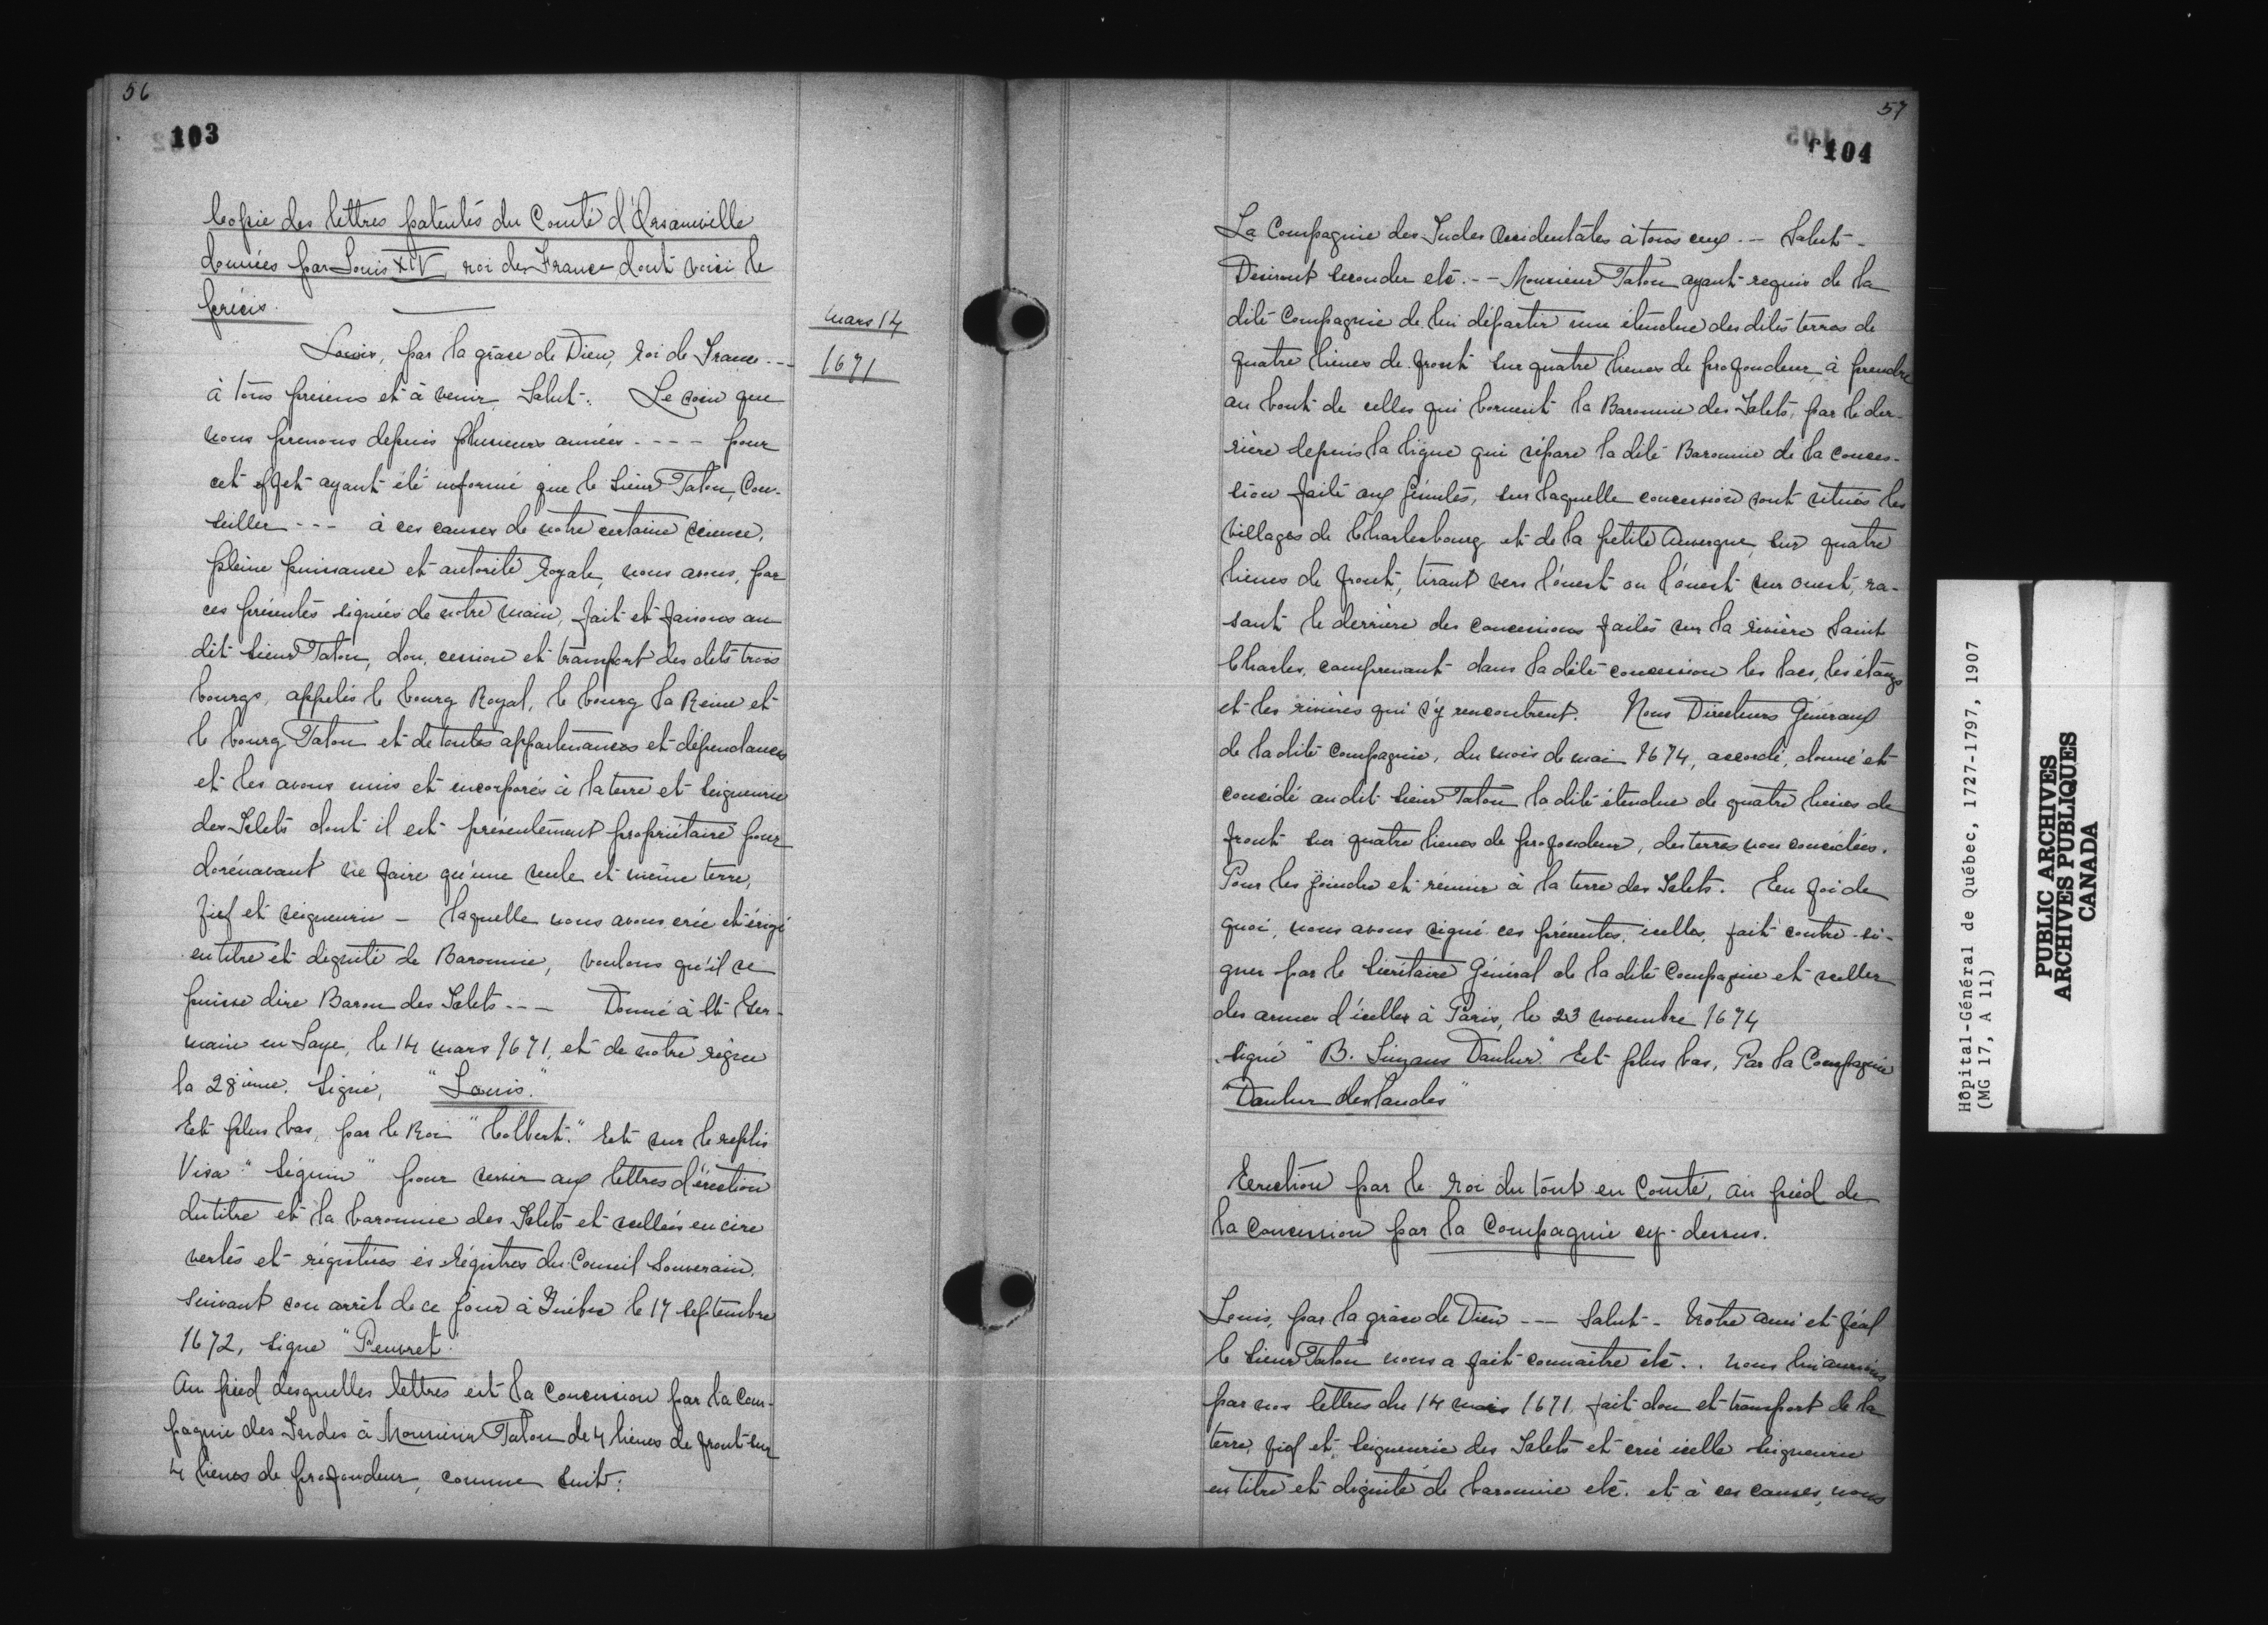 56
103
Copie des lettres patentes du Comté d'Orsainville
données par Louis XIV, roi de France, dont voici le
précis.
mars 14
1671
Louis, par la grâce de Dieu, roi de France ---
à tous présens et à venir, Salut. Le soin que
nous prenons depuis plusieurs années ---- pour
cet effet ayant été informé que le Sieur Talon, Con-
seiller --- à ces causes de notre certaine science,
pleine puissance et autorité Royale, nous avons, par
ces présentes signées de notre main, fait et faisons au
dit Sieur Talon, don, cession et transport des dits trois
bourgs, appelés le bourg Royal, le bourg la Reine et
le bourg Talon et de toutes appartenances et dépendances
et les avons unis et incorporés à la terre et Seigneurie
des Islets dont il est présentement propriétaire pour
dorénavant ne faire qu'une seule et même terre,
fief et seigneurie - laquelle nous avons créé et érigé
en titre et dignité de Baronnie, voulons qu'il se
puisse dire Baron des Islets --- Donné à St Ger-
main en Laye, le 14 mars 1671, et de notre règne
la 28ième. Signé, "Louis."
Et plus bas, par le Roi "Colbert." Et sur le replis
Visa "Séguin" pour servir aux lettres d'érection
du titre et la baronnie des Islets et scellées en cire
vertes et régistrées ès régistres du Conseil Souverain,
suivant son arrêt de ce jour à Québec le 17 septembre
1672, signé "Peuvret."
Au pied desquelles lettres est la Concession par la Com-
pagnie des Indes à Monsieur Talon de 4 lieues de front sur
4 lieues de profondeur, comme suit:
57
104
La Compagnie des Indes Occidentales à tous ceux --- Salut -
Désirant seconder etc. -- Monsieur Talon ayant requis de la
dite Compagnie de lui départir une étendue des dites terres de
quatre lieues de front sur quatre lieues de profondeur, à prendre
au bout de celles qui bornent la Baronnie des Islets, par le der-
rière depuis la ligne qui sépare la dite Baronnie de la conces-
sion faite aux Jésuites, sur laquelle concession sont situés les
villages de Charlesbourg et de la petite Auvergne, sur quatre
lieues de front, tirant vers l'ouest ou l'ouest sur ouest, ra-
sant le derrière des concessions faites sur la rivière Saint
Charles, comprenant dans la dite concession les lacs, les étangs
et les rivières qui s'y rencontrent. Nous Directeurs Généraux
de la dite Compagnie, du mois de mai 1674, accordé, donné et
concédé au dit Sieur Talon la dite étendue de quatre lieues de
front sur quatre lieues de profondeur, des terres non concédées.
Pour les joindre et réunir à la terre des Islets. En foi de
quoi, nous avons signé ces présentes, icelles, fait contre-si-
gner par le Secrétaire Général de la dite Compagnie et sceller
des armes d'icelles à Paris, le 23 novembre 1674
signé "B. Daulier" Et plus bas, Par la Compagnie
"Daulier deslandes"
Erection par le roi du tout en Comté, au pied de
la concession par la Compagnie cy-dessus.
Louis, par la grâce de Dieu --- Salut - Notre ami et féal
le Sieur Talon nous a fait connaître etc.. nous lui aurions
par nos lettres du 14 mars 1671, fait don et transport de la
terre, fief et Seigneurie des Islets et créé icelle Seigneurie
en titre et dignité de baronnie etc. et à ces causes, nous
Hôpital-Général de Québec, 1727-1797, 1907
(MG 17, A 11)
PUBLIC ARCHIVES
ARCHIVES PUBLIQUES
CANADA